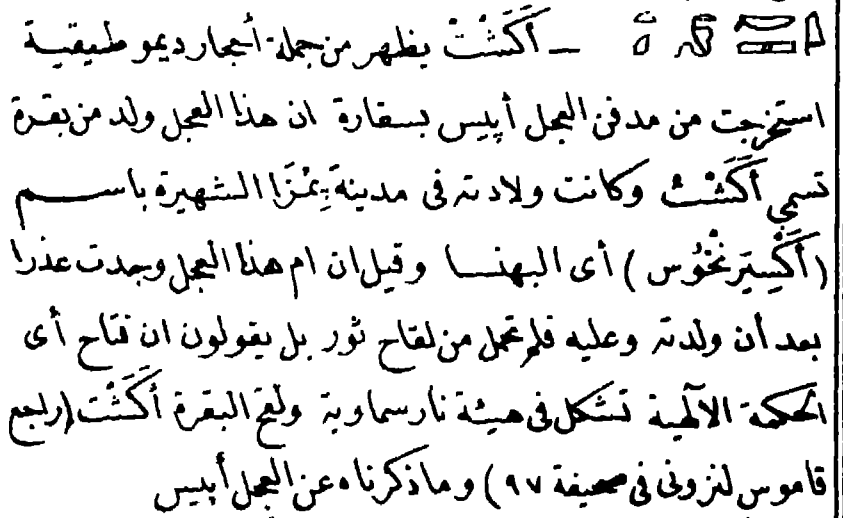 — أَكَشْتْ يظهر من جملة أحجار ديموطيقية
استخرجت من مدفن العجل أپيس بسقارة ان هذا العجل ولد من بقرة
تسمى أَكَشْت وكانت ولادته فى مدينة پِمْزَا الشهيرة باسم
(أُكْسِيَرِنْخُوس) أى البهنسا وقيل ان ام هذا العجل وجدت عذرا
بعد أن ولدته وعليه فلم تحمل من لقاح ثور بل يقولون ان فتاح أى
الحكمة الآلهية تشكل فى هيئة نار سماوية ولقح البقرة أَكَشْت (راجع
قاموس لنزونى فى صحيفة ٩٧) وما ذكرناه عن العجل أپيس